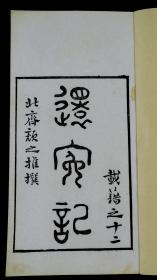 載籍之十二
還冤記
北齊顏之推撰